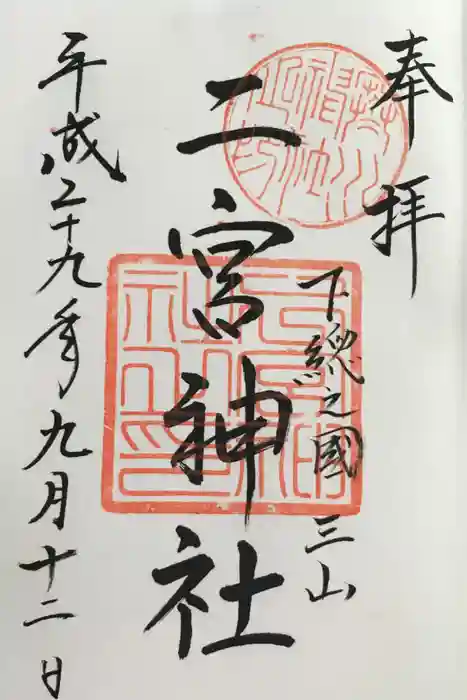 奉拝
下総之國 三山
二宮神社
平成二十九年九月十二日